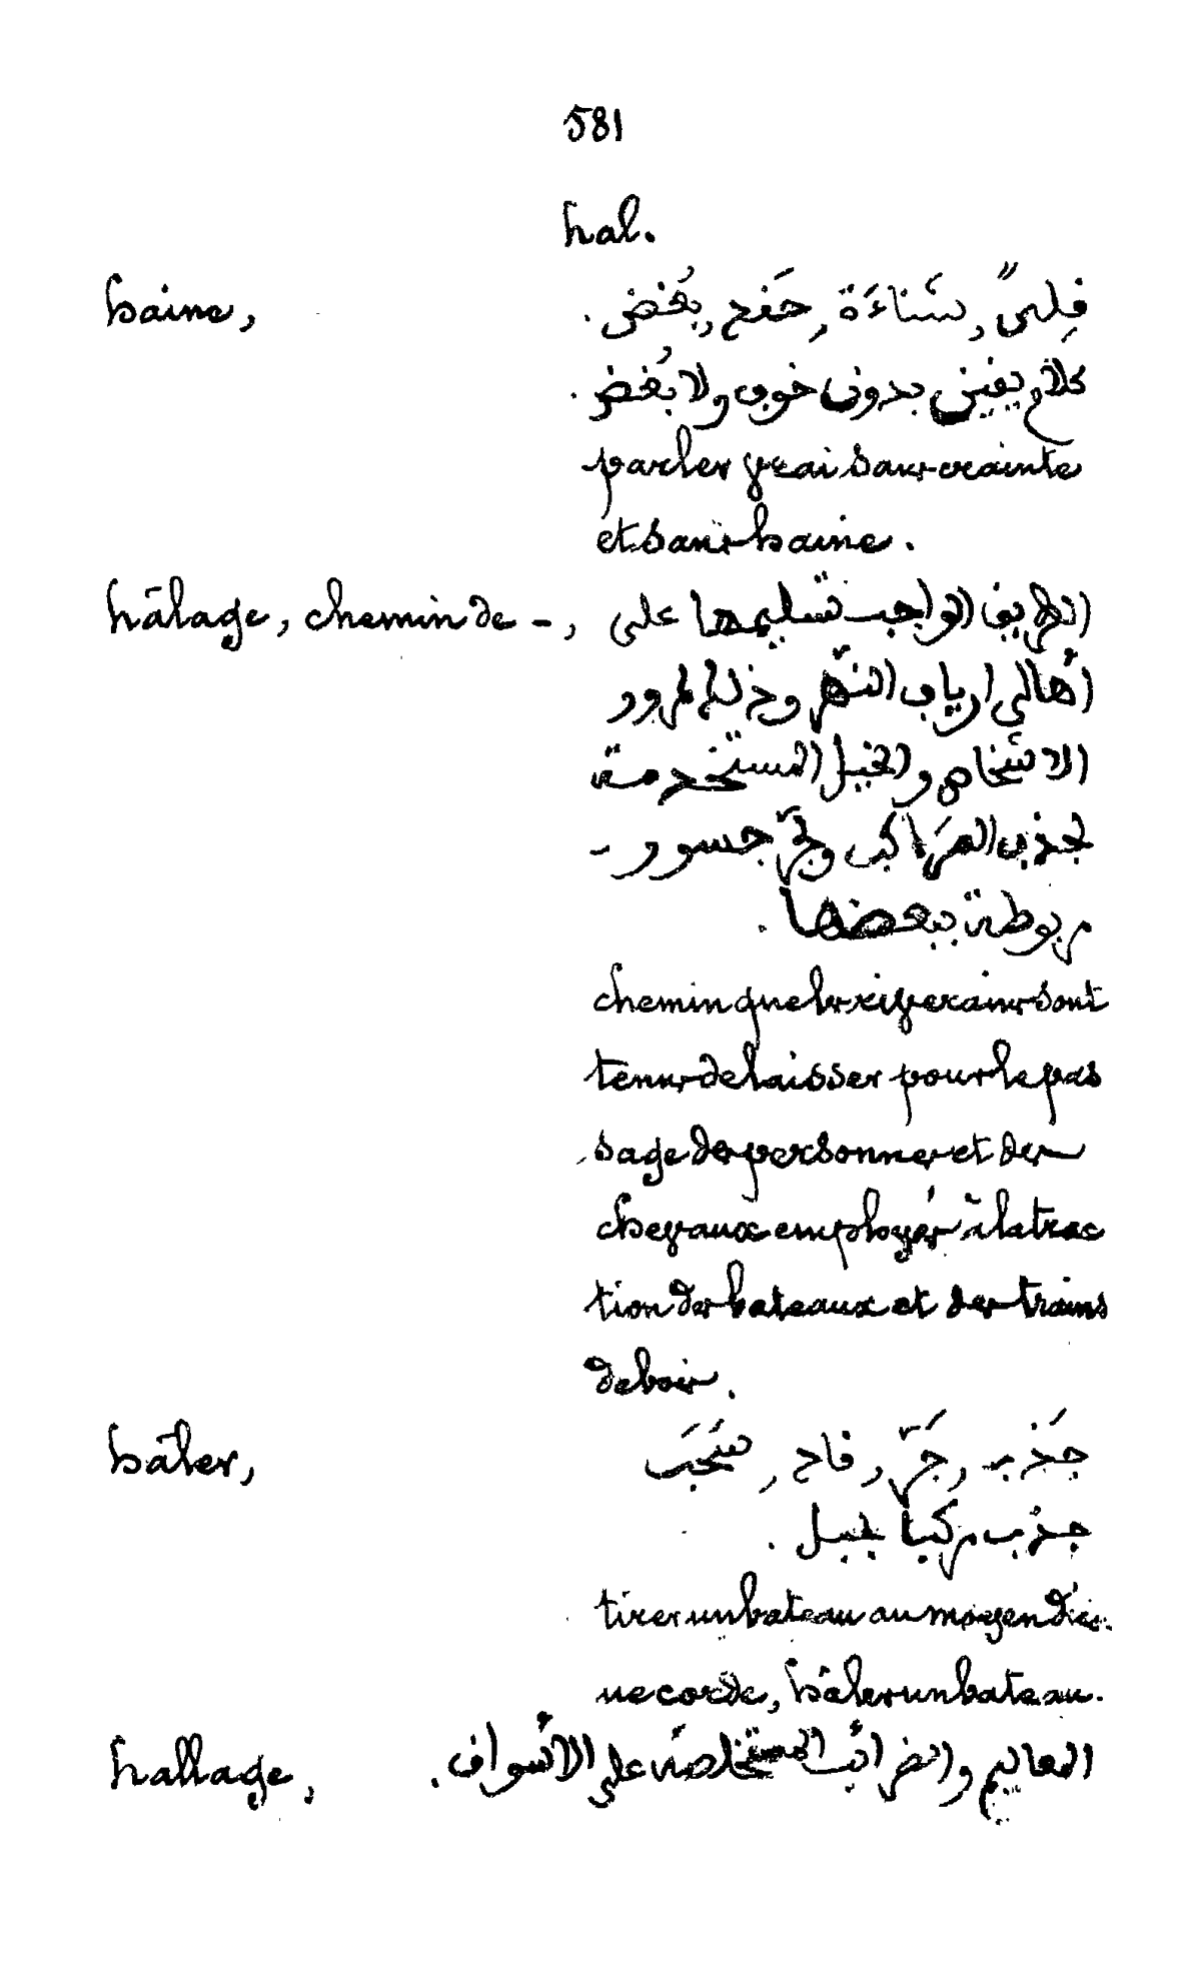 581
hal.
haine, قِلىً, شَناءَة, حَفح, بُغض.
كلام يقين بدون خوف ولا بُغض.
parler vrai sans crainte
et sans haine.
hâlage, chemin de -, الطريق الواجب تسليمها على
أهالي ارياف النهر وذلك لمرور
الاشخاص والخيل المستخدمة
لجذب المَراكب ولجرّ جسور -
مربوطة ببعضها.
chemin que les riverains sont
tenus de laisser pour le pas
sage des personnes et des
chevaux employés à la trac
tion des bateaux et des trains
de bois.
hâler, جَذَب, جَرّ, قاد, سَحَبَ
جذب مركباً بحبل.
tirer un bateau au moyen d'u
ne corde, hâler un bateau.
hallage, المعاليم والضرائب المستخلصة على الأسواق.